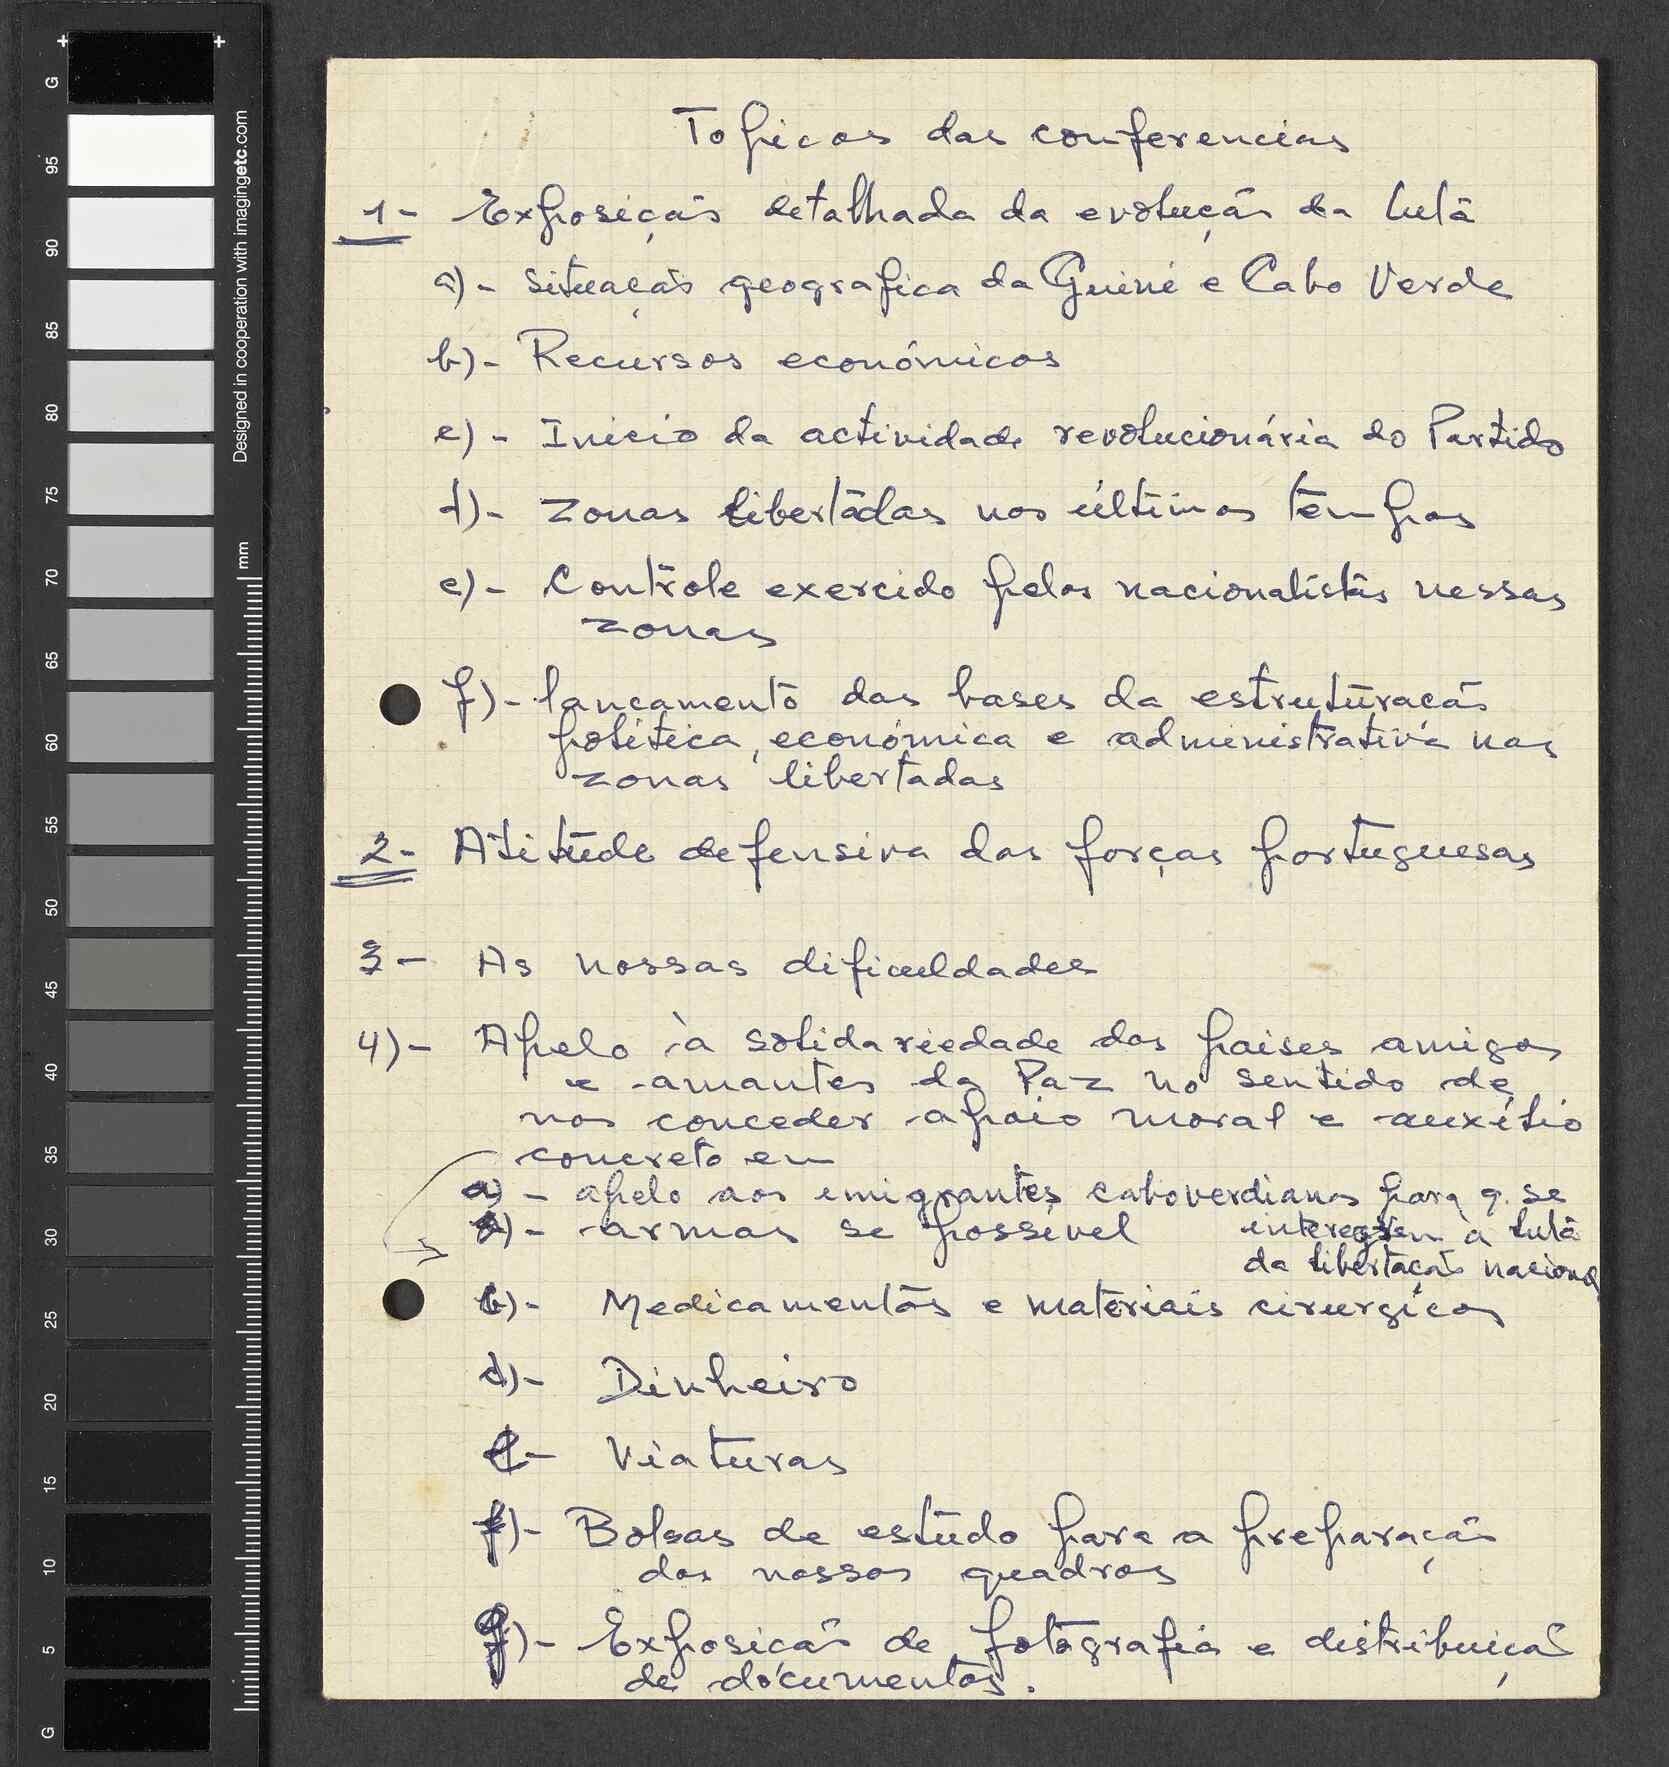 Topicos das conferencias
1- Exposição detalhada da evolução da luta
a)- Situação geografica da Guiné e Cabo Verde
b)- Recursos económicos
c)- Inicio da actividade revolucionária do Partido
d)- Zonas libertadas nos últimos tempos
e)- Controle exercido pelos nacionalistas nessas
zonas
f)- lançamento das bases da estruturação
política, económica e administrativa nas
zonas libertadas
2- Atitude defensiva das forças portuguesas
3- As nossas dificuldades
4)- Apelo à solidariedade dos paises amigos
e amantes da Paz no sentido de
nos conceder apoio moral e auxílio
concreto em
a)- apelo aos emigrantes caboverdianos para q. se
armas se possível integrem à luta
da libertação nacional
Medicamentos e materiais cirurgicos
d)- Dinheiro
Viaturas
f)- Bolsas de estudo para a preparação
dos nossos quadros
g)- Exposição de fotografia e distribuição
de documentos.
G
95
90
85
80
75
70
65
60
55
50
45
40
35
30
25
20
15
10
5
G
Designed in cooperation with imagingetc.com
mm